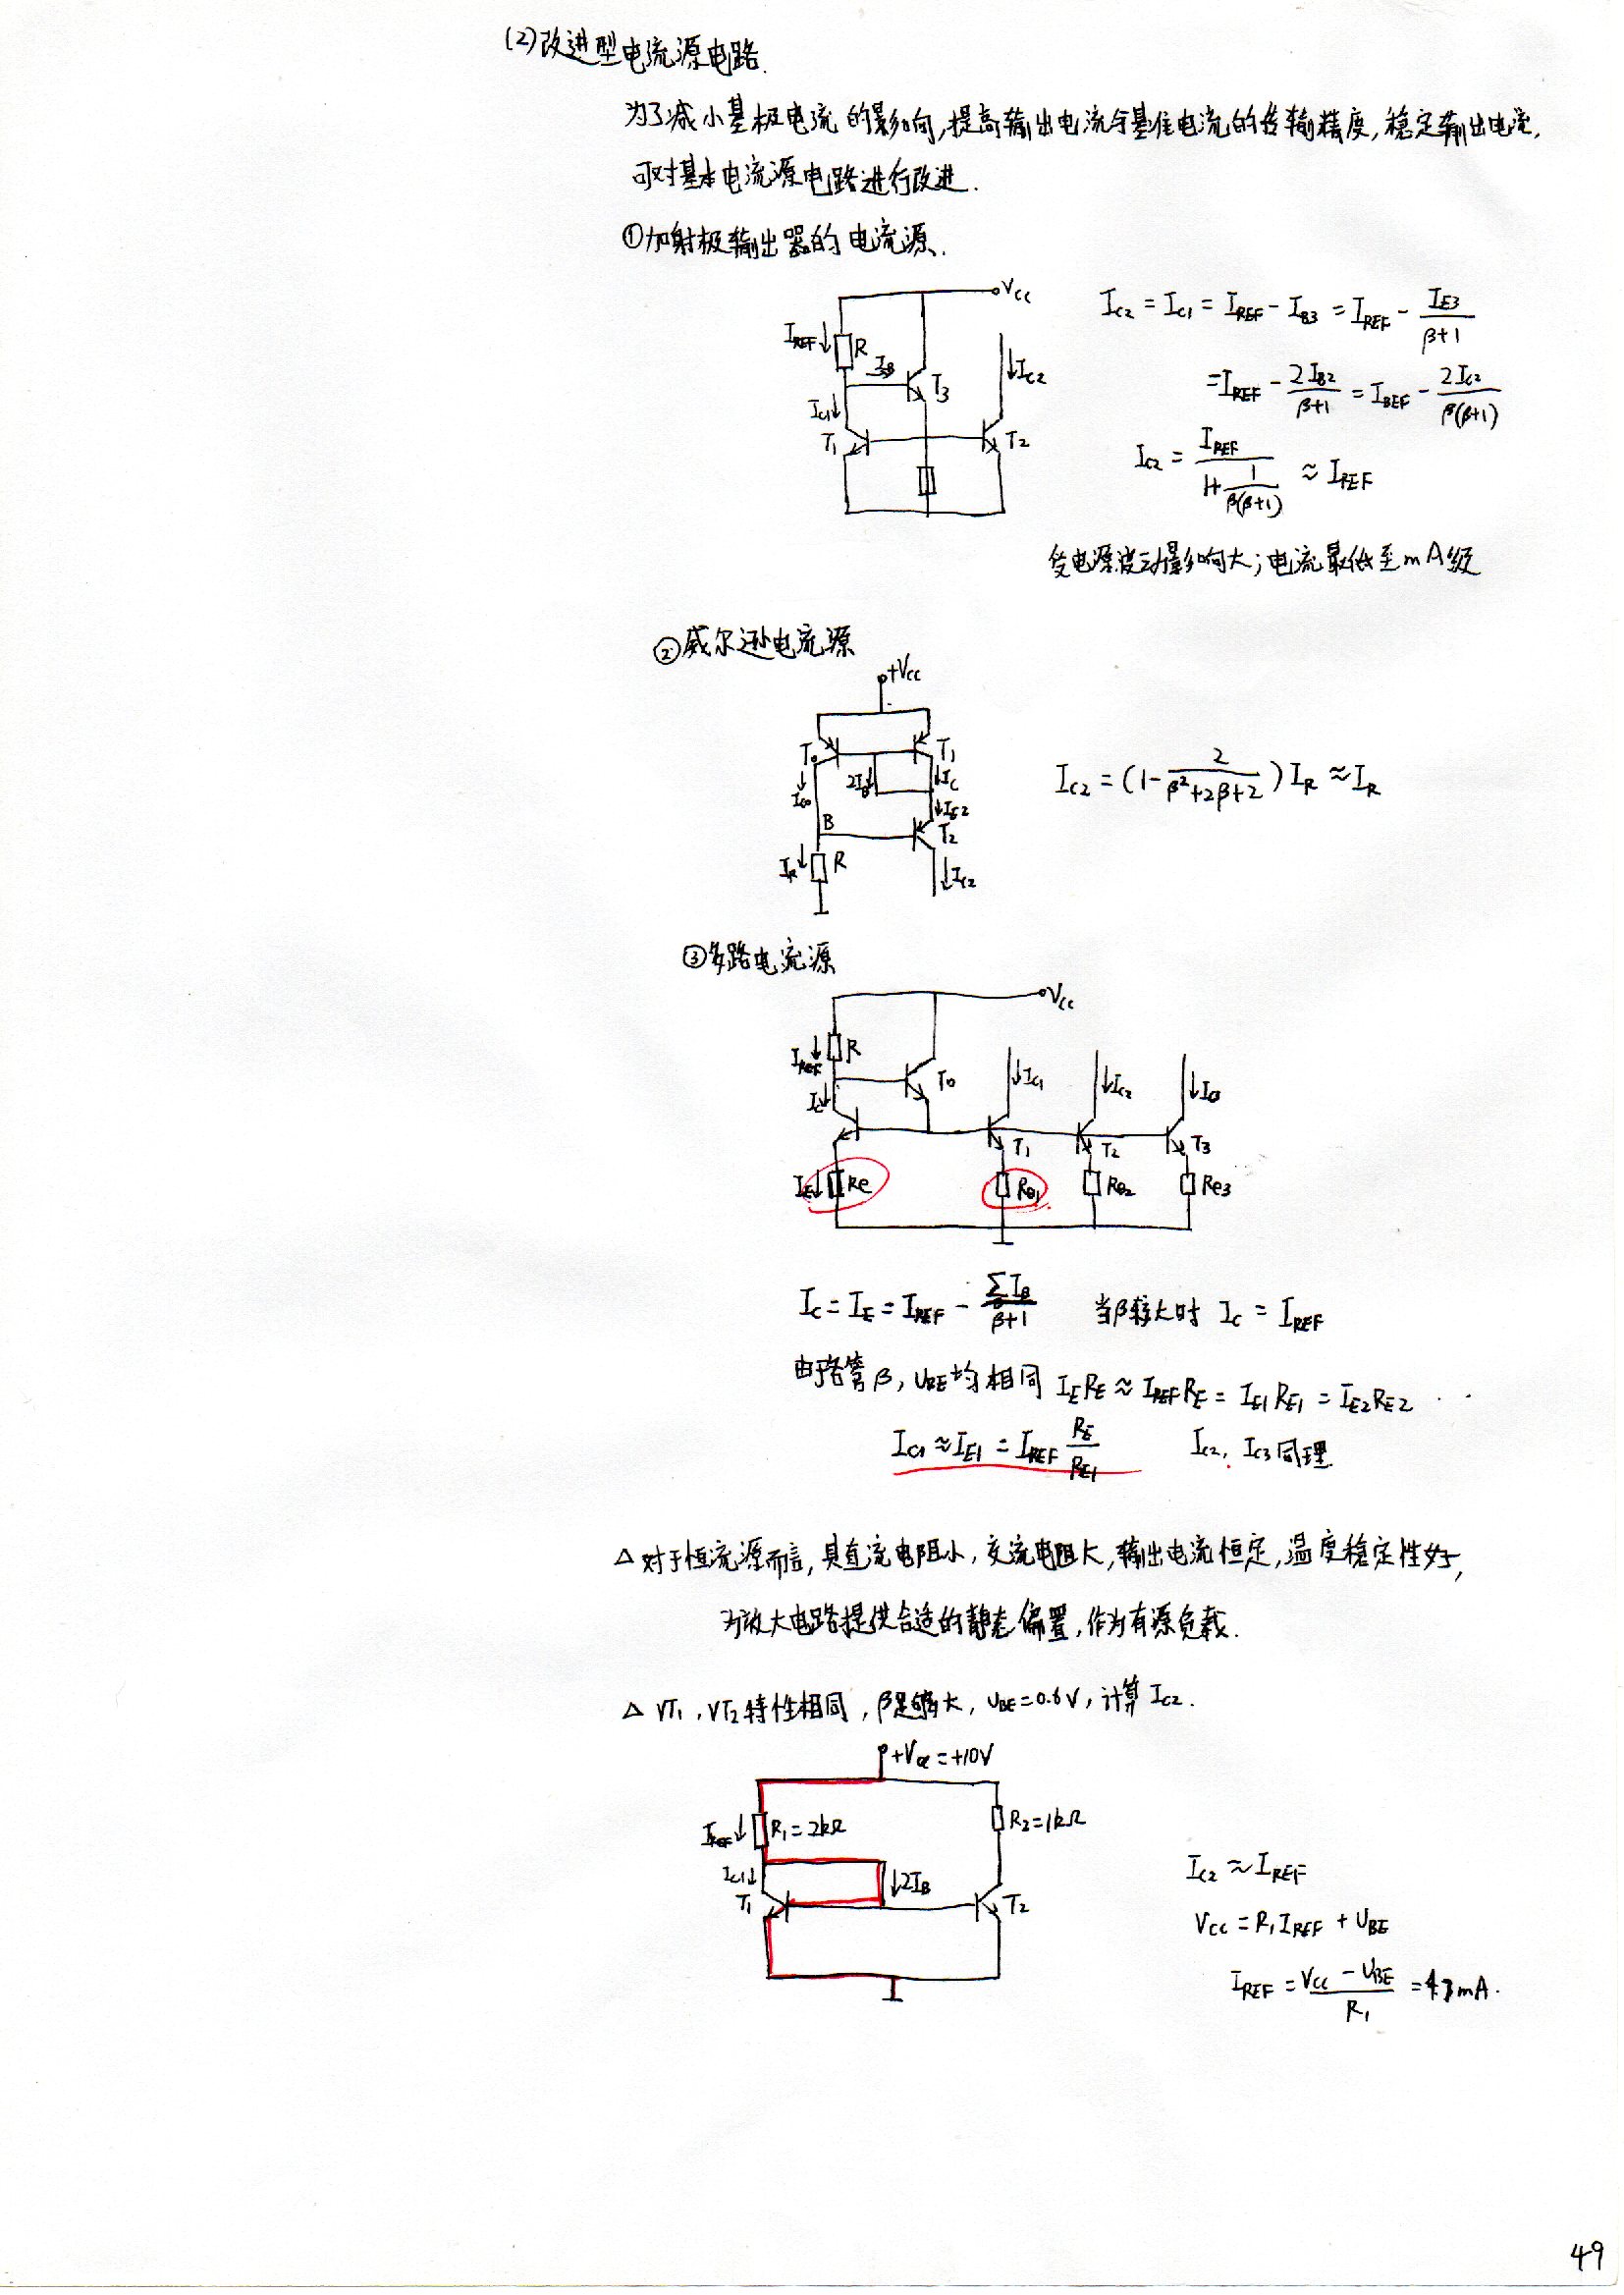 (2)改进型电流源电路.
为了减小基极电流的影响,提高输出电流与基准电流的传输精度,稳定输出电流,
可对基本电流源电路进行改进.
①加射极输出器的电流源.
VCC
IREF↓ R
IB
T3
↓IC2
IC1↓
T1
T2
IC2 = IC1 = IREF - IB3 = IREF - IE3/(β+1)
= IREF - 2IB2/(β+1) = IREF - 2IC2/(β(β+1))
IC2 = IREF/(1+1/(β(β+1))) ≈ IREF
受电源波动影响大;电流最低至mA级
②威尔逊电流源
+VCC
T0
T1
IC0
2IB↓
↓IC
↓IE2
B
T2
IR↓ R
↓IC2
IC2 = (1 - 2/(β²+2β+2)) IR ≈ IR
③多路电流源
VCC
IREF↓ R
T0
↓IC1
↓IC2
IC↓
T1
T2
T3
IE↓ Re
Re1
Re2
Re3
IC = IE = IREF - ΣIB/(β+1) 当β较大时 IC = IREF
由于各管β, UBE均相同 IERE ≈ IREFRE = IE1RE1 = IE2RE2 ··
IC1 ≈ IE1 = IREF RE/RE1 IC2, IC3同理
△ 对于恒流源而言,具直流电阻小,交流电阻大,输出电流恒定,温度稳定性好,
为放大电路提供合适的静态偏置,作为有源负载.
△ VT1, VT2特性相同, β足够大, UBE=0.6V, 计算IC2.
+VCC=+10V
IREF↓ R1=2kΩ
R2=1kΩ
IC1↓
↓2IB
T1
T2
IC2 ≈ IREF
VCC = R1IREF + UBE
IREF = (VCC - UBE)/R1 = 4.7mA.
49